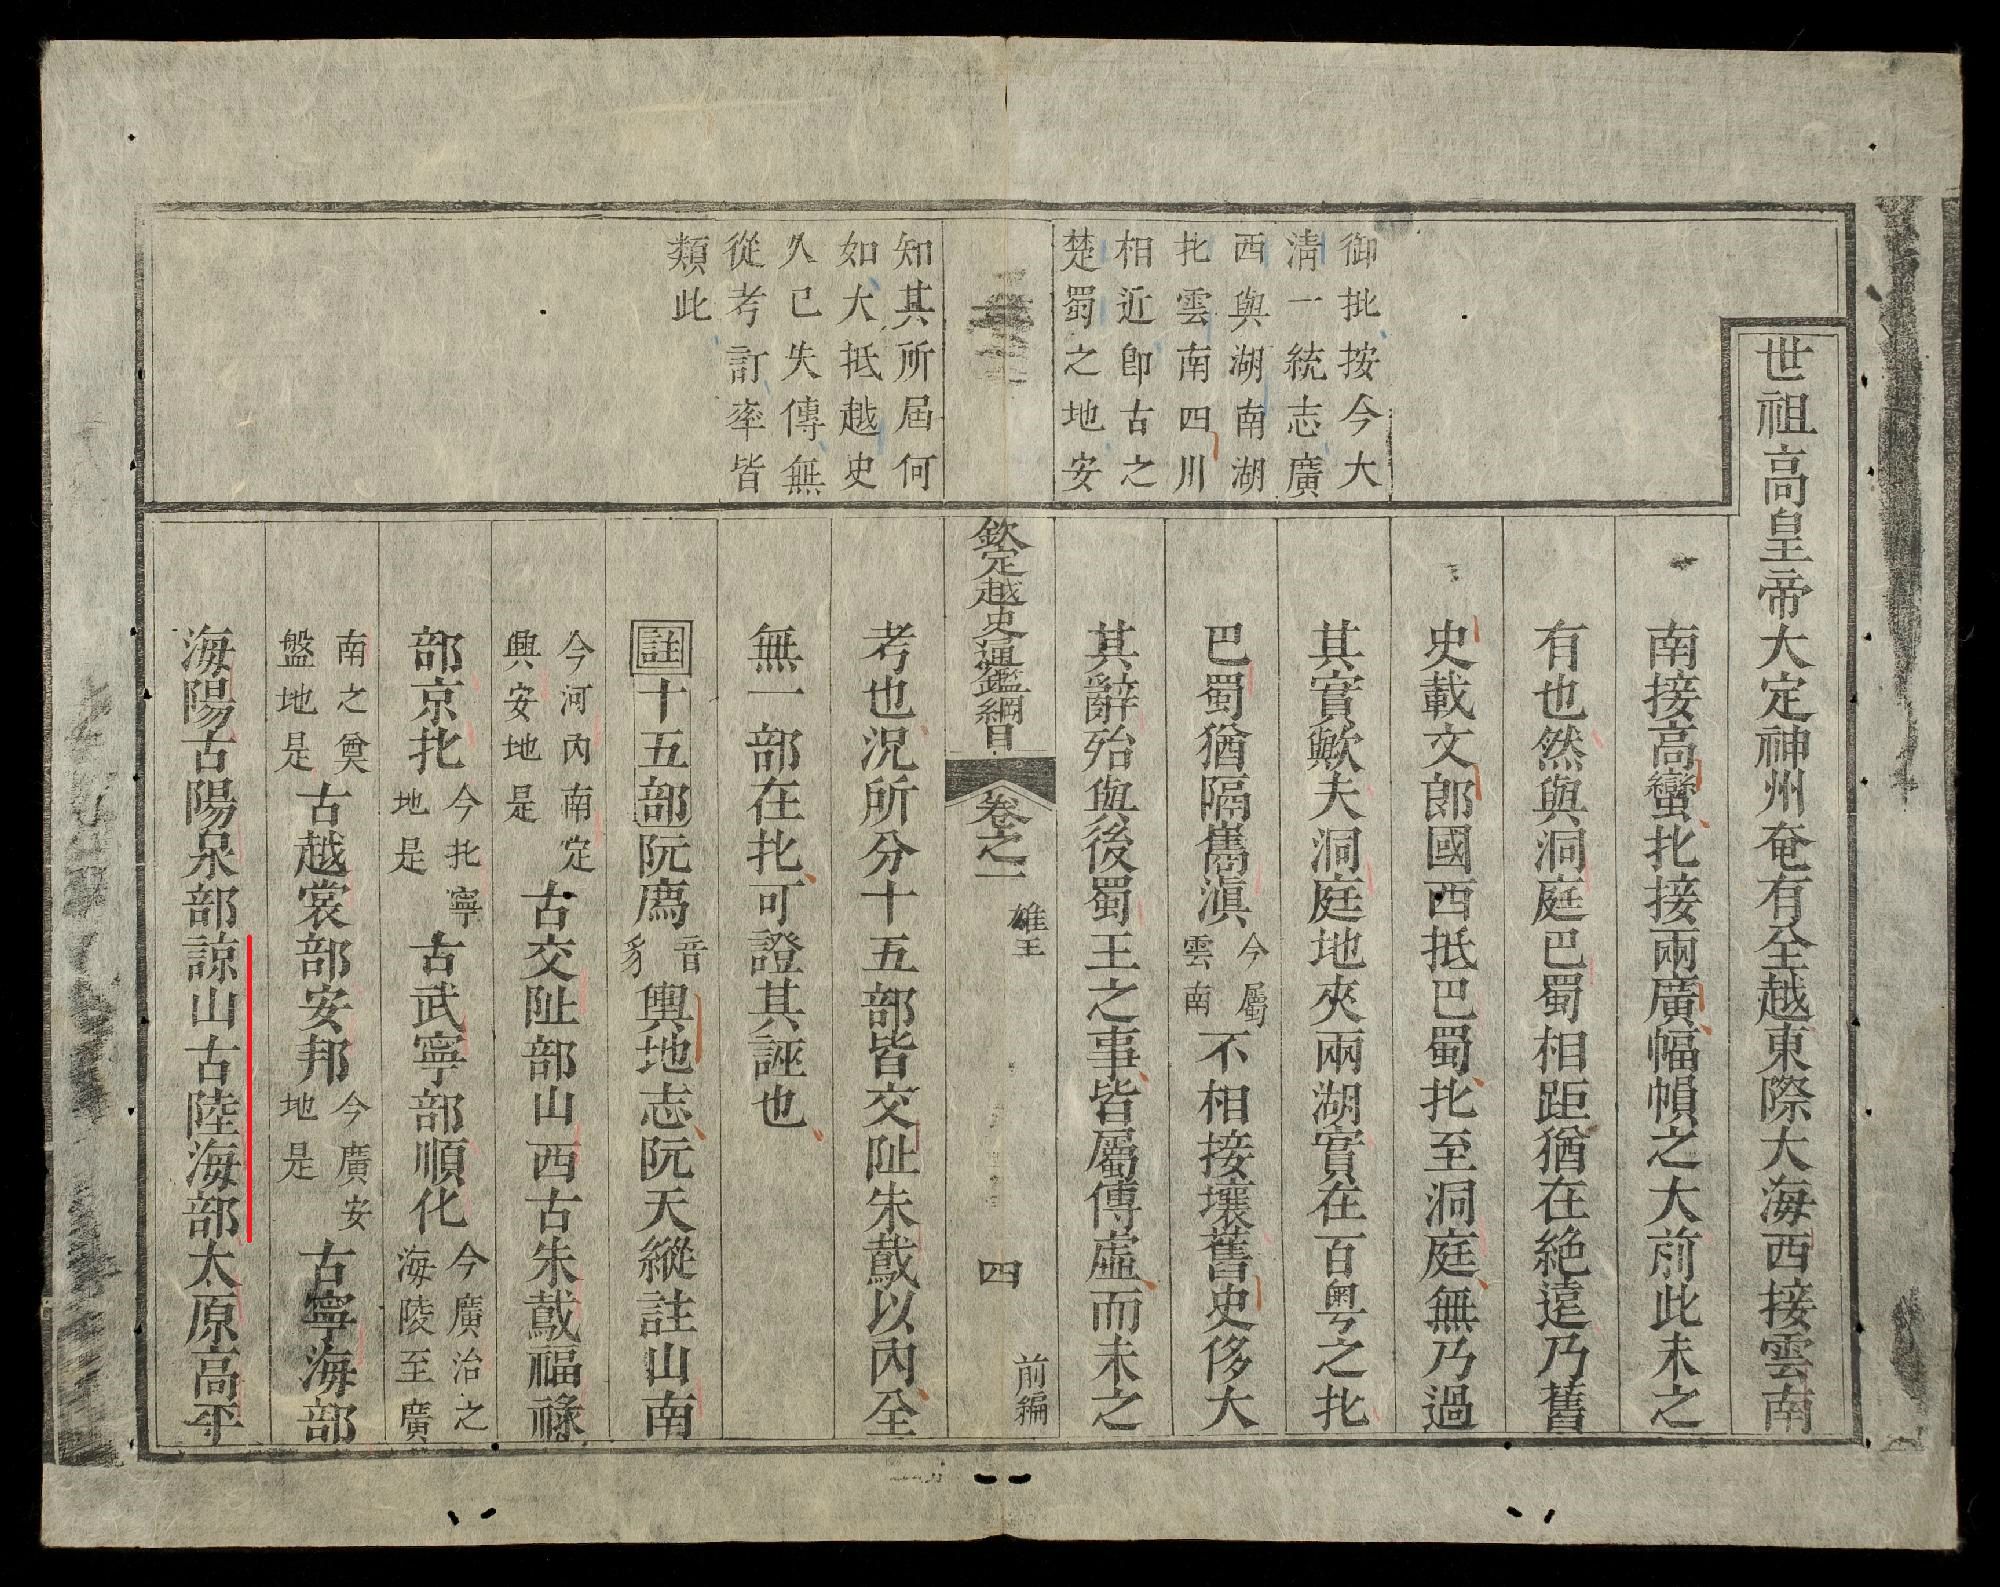 世祖高皇帝大定神州奄有全越東際大海西接雲南
南接高蠻北接兩廣幅幀之大前此未之
有也然與洞庭巴蜀相距猶在絶遠乃舊
史載文郎國西抵巴蜀北至洞庭無乃過
其實歟夫洞庭地夾兩湖實在百粵之北
巴蜀猶隔雟滇今屬雲南不相接壤舊史侈大
其辭殆與後蜀王之事皆屬傳虛而未之
御批按今大
清一統志廣
西與湖南湖
北雲南四川
相近卽古之
楚蜀之地安
欽定越史通鑑綱目
卷之一
雄王
四
前編
知其所屆何
如大抵越史
久已失傳無
從考訂率皆
類此
考也況所分十五部皆交趾朱鳶以內全
無一部在北可證其誣也
註十五部阮廌音豸輿地志阮天縱註山南
今河內南定興安地是古交趾部山西古朱鳶福祿
部京北今北寧地是古武寧部順化今廣治之海陵至廣
南之奠盤地是古越裳部安邦今廣安地是古寧海部
海陽古陽泉部諒山古陸海部太原高平